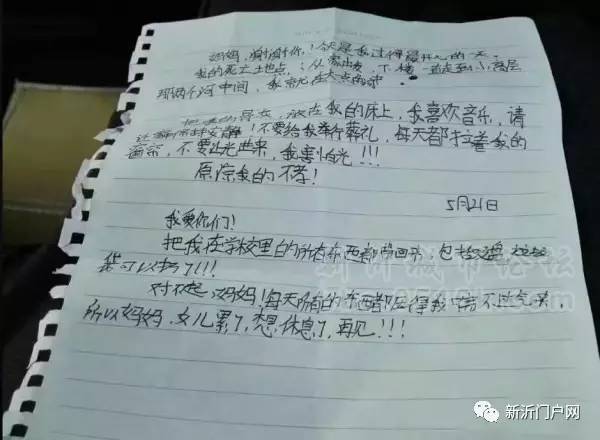 妈妈,谢谢你!今天是我过得最开心的一天。
我的死亡土地点:从家出发,下楼一直走到小高层
那两个河中间,我就在大点的
放在我的床上,我喜欢音乐,请
!不要给我举行葬礼,每天都拉着我的
窗帘,不要让光进来,我害怕光!!!
原谅我的不孝!
5月21日
我爱你们!
把我在学校里的所有东西都带回来,包括
可以扔了!!!
对不起,妈妈!每天所有的东西都压得我喘不过气来
所以妈妈,女儿累了,想休息了,再见!!!
新沂城市论坛
新沂门户网